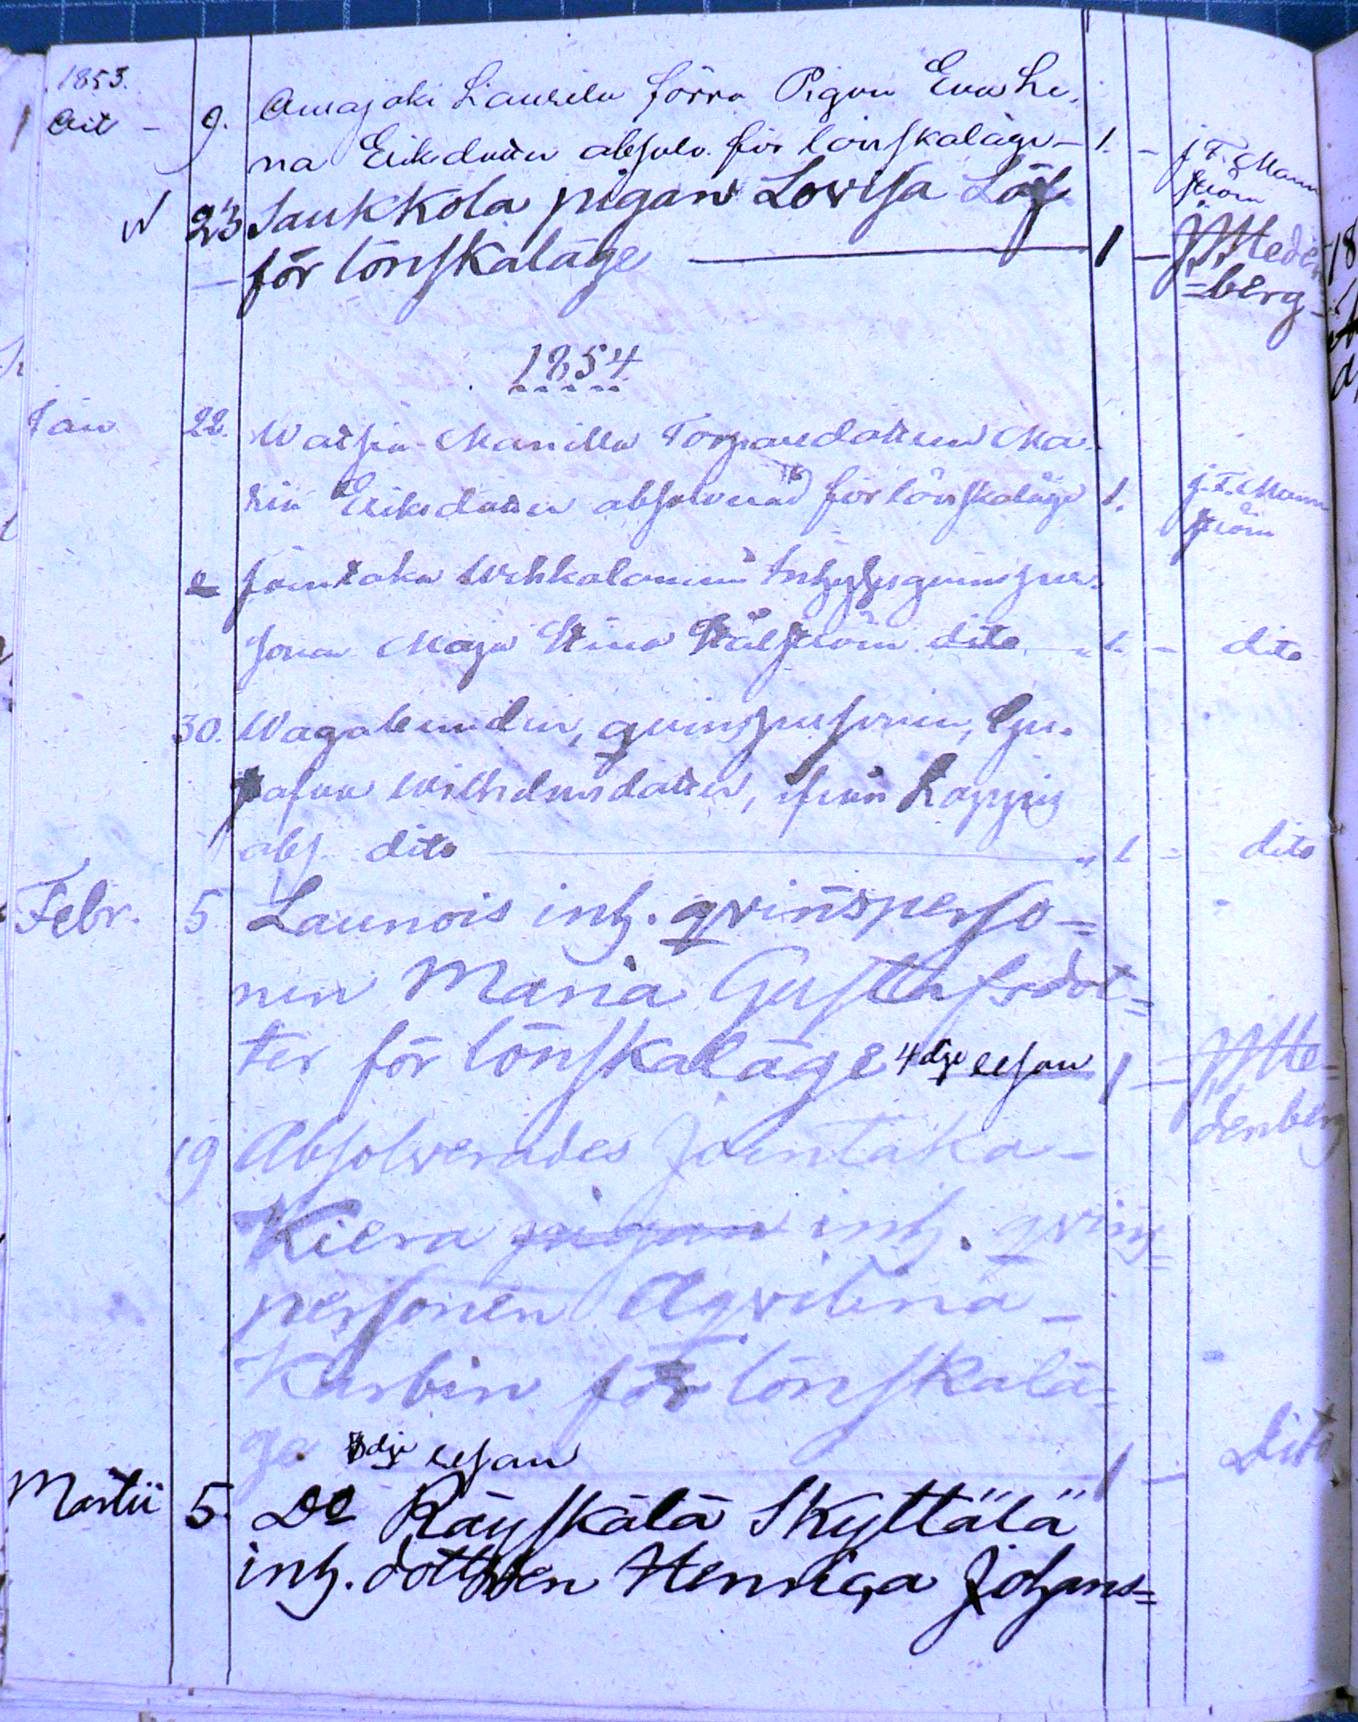 1853.
Oct - 9. Amajoki Laurila förra Pigan Eva Le-
na Eriksdotter absolv. för lönskaläge - 1. - J. F. Mann
ström
23 Saukkola pigan Lovisa Löf
för lönskaläge 1 - Meden
=berg
1854
Jan 22. Manilla Torparedottern Ma-
ria Eriksdotter absolverad för lönskaläge 1. J. F. Mann
ström
Jointaka
sonen Maja Stina dito 1. - dito
30. Vagabunden, qvinspersonen, Gu-
stafva Wilhelmsdotter, ifrån Loppis
abs. dito 1 - dito
Febr. 5 Launois inh. qvinsperso=
nen Maria Gustafsdot=
ter för lönskaläge 4dje resan 1 - Me=
denberg
19 Absolverades Jointaka-
Kiera pigan inh. qvins=
personen Agvilina -
Karbin för lönskalä=
ge. 3dje resan 1 - Dito
Martii 5. Do Räyskälä Skyttälä
inh. dottren Henrica Johans=